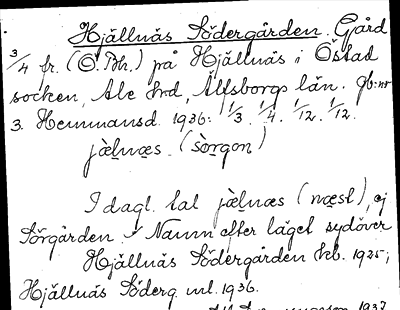 Hjällnäs Södergården. Gård
3/4 fr. (O. Bh.) på Hjällnäs i Östad
socken, Ale hrd, Älfsborgs län. Jb:nr
3. Hemmansd. 1936: 1/3. 1/4. 1/12. 1/12.
jæḷnæs. (sòrgon)
I dagl. tal jæḷnæs (næst), ej
Sörgården. Namn efter läget sydöver
Hjällnäs Södergården kb. 1925;
Hjällnäs Söderg. ml. 1936.
1937